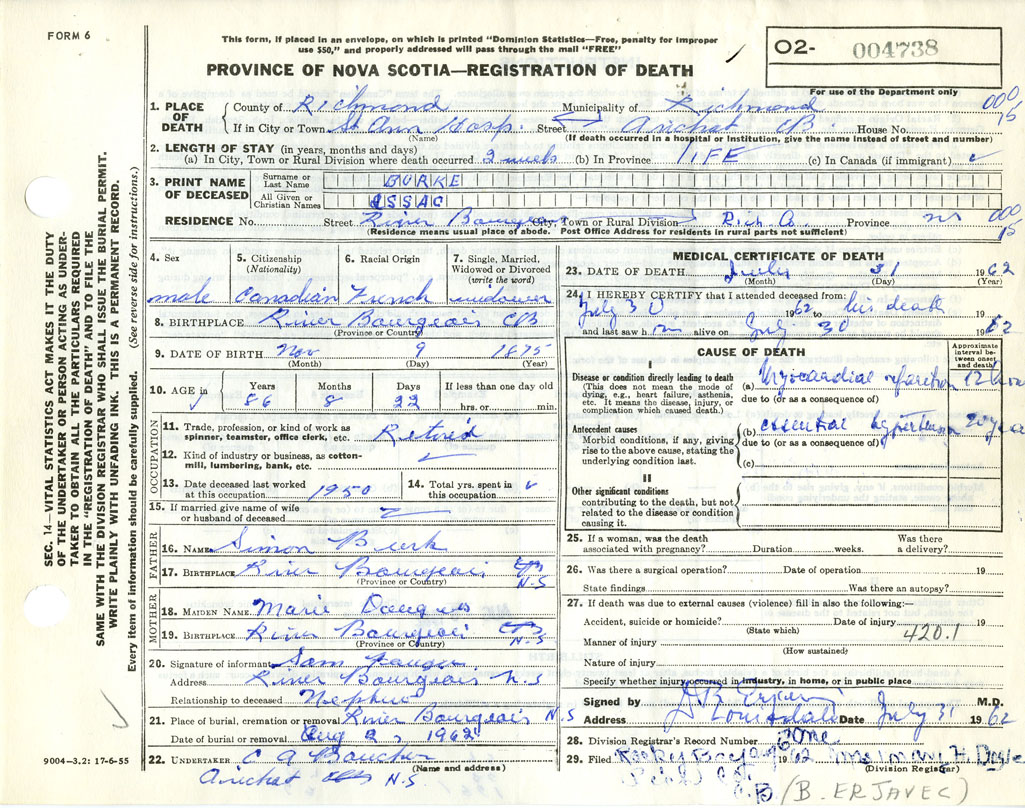 FORM 6
This form, if placed in an envelope, on which is printed "Dominion Statistics—Free, penalty for improper
use $50," and properly addressed will pass through the mail "FREE"
PROVINCE OF NOVA SCOTIA—REGISTRATION OF DEATH
O2- 004738
For use of the Department only
1. PLACE OF DEATH County of Richmond Municipality of Richmond 000 15
If in City or Town St Ann Hosp. Street Arichat CB. House No.
(Name) (If death occurred in a hospital or institution, give the name instead of street and number)
2. LENGTH OF STAY (in years, months and days)
(a) In City, Town or Rural Division where death occurred 2 weeks (b) In Province LIFE (c) In Canada (if immigrant)
3. PRINT NAME OF DECEASED Surname or Last Name BURKE
All Given or Christian Names ISSAC
RESIDENCE No. Street River Bourgeois City, Town or Rural Division Rich Co. Province NS 000 15
(Residence means usual place of abode. Post Office Address for residents in rural parts not sufficient)
SEC. 14—VITAL STATISTICS ACT MAKES IT THE DUTY
OF THE UNDERTAKER OR PERSON ACTING AS UNDER-
TAKER TO OBTAIN ALL THE PARTICULARS REQUIRED
IN THE "REGISTRATION OF DEATH" AND TO FILE THE
SAME WITH THE DIVISION REGISTRAR WHO SHALL ISSUE THE BURIAL PERMIT.
WRITE PLAINLY WITH UNFADING INK. THIS IS A PERMANENT RECORD.
Every item of information should be carefully supplied. (See reverse side for instructions.)
4. Sex 5. Citizenship (Nationality) 6. Racial Origin 7. Single, Married, Widowed or Divorced (write the word)
male Canadian French widower
8. BIRTHPLACE River Bourgeois CB
(Province or Country)
9. DATE OF BIRTH Nov 9 1875
(Month) (Day) (Year)
10. AGE in Years 86 Months 8 Days 22 If less than one day old hrs. or min.
OCCUPATION
11. Trade, profession, or kind of work as
spinner, teamster, office clerk, etc. Retired
12. Kind of industry or business, as cotton-
mill, lumbering, bank, etc.
13. Date deceased last worked at this occupation 1950 14. Total yrs. spent in this occupation
15. If married give name of wife
or husband of deceased
FATHER
16. NAME Simon Burk
17. BIRTHPLACE River Bourgeois CB N.S
(Province or Country)
MOTHER
18. MAIDEN NAME Marie
19. BIRTHPLACE River Bourgeois CB N.S
(Province or Country)
20. Signature of informant Sam
Address River Bourgeois N.S
Relationship to deceased Nephew
21. Place of burial, cremation or removal River Bourgeois N.S
Date of burial or removal Aug 2, 1962
22. UNDERTAKER C A Boucher
(Name and address)
Arichat N.S
9004-3.2: 17-6-55
MEDICAL CERTIFICATE OF DEATH
23. DATE OF DEATH July 31 1962
(Month) (Day) (Year)
24. I HEREBY CERTIFY that I attended deceased from:
July 30 1962 to his death
and last saw him alive on July 30 1962
CAUSE OF DEATH
Approximate interval between onset and death
I
Disease or condition directly leading to death
(This does not mean the mode of
dying, e.g., heart failure, asthenia,
etc. It means the disease, injury, or
complication which caused death.)
(a) Myocardial infarction 12 hours
due to (or as a consequence of)
Antecedent causes
Morbid conditions, if any, giving
rise to the above cause, stating the
underlying condition last.
(b) essential hypertension 20 years
due to (or as a consequence of)
(c)
II
Other significant conditions
contributing to the death, but not
related to the disease or condition
causing it.
25. If a woman, was the death
associated with pregnancy? Duration weeks. Was there a delivery?
26. Was there a surgical operation? Date of operation 19
State findings Was there an autopsy?
27. If death was due to external causes (violence) fill in also the following:—
Accident, suicide or homicide? Date of injury 19
(State which) 420.1
Manner of injury
(How sustained)
Nature of injury
Specify whether injury occurred in industry, in home, or in public place
Signed by M.D.
Address Louisdale Date July 31 1962
28. Division Registrar's Record Number
29. Filed Rocky Bay Aug 1962 Mrs. Mary H. Doyle
(Division Registrar)
(B. ERJAVEC)